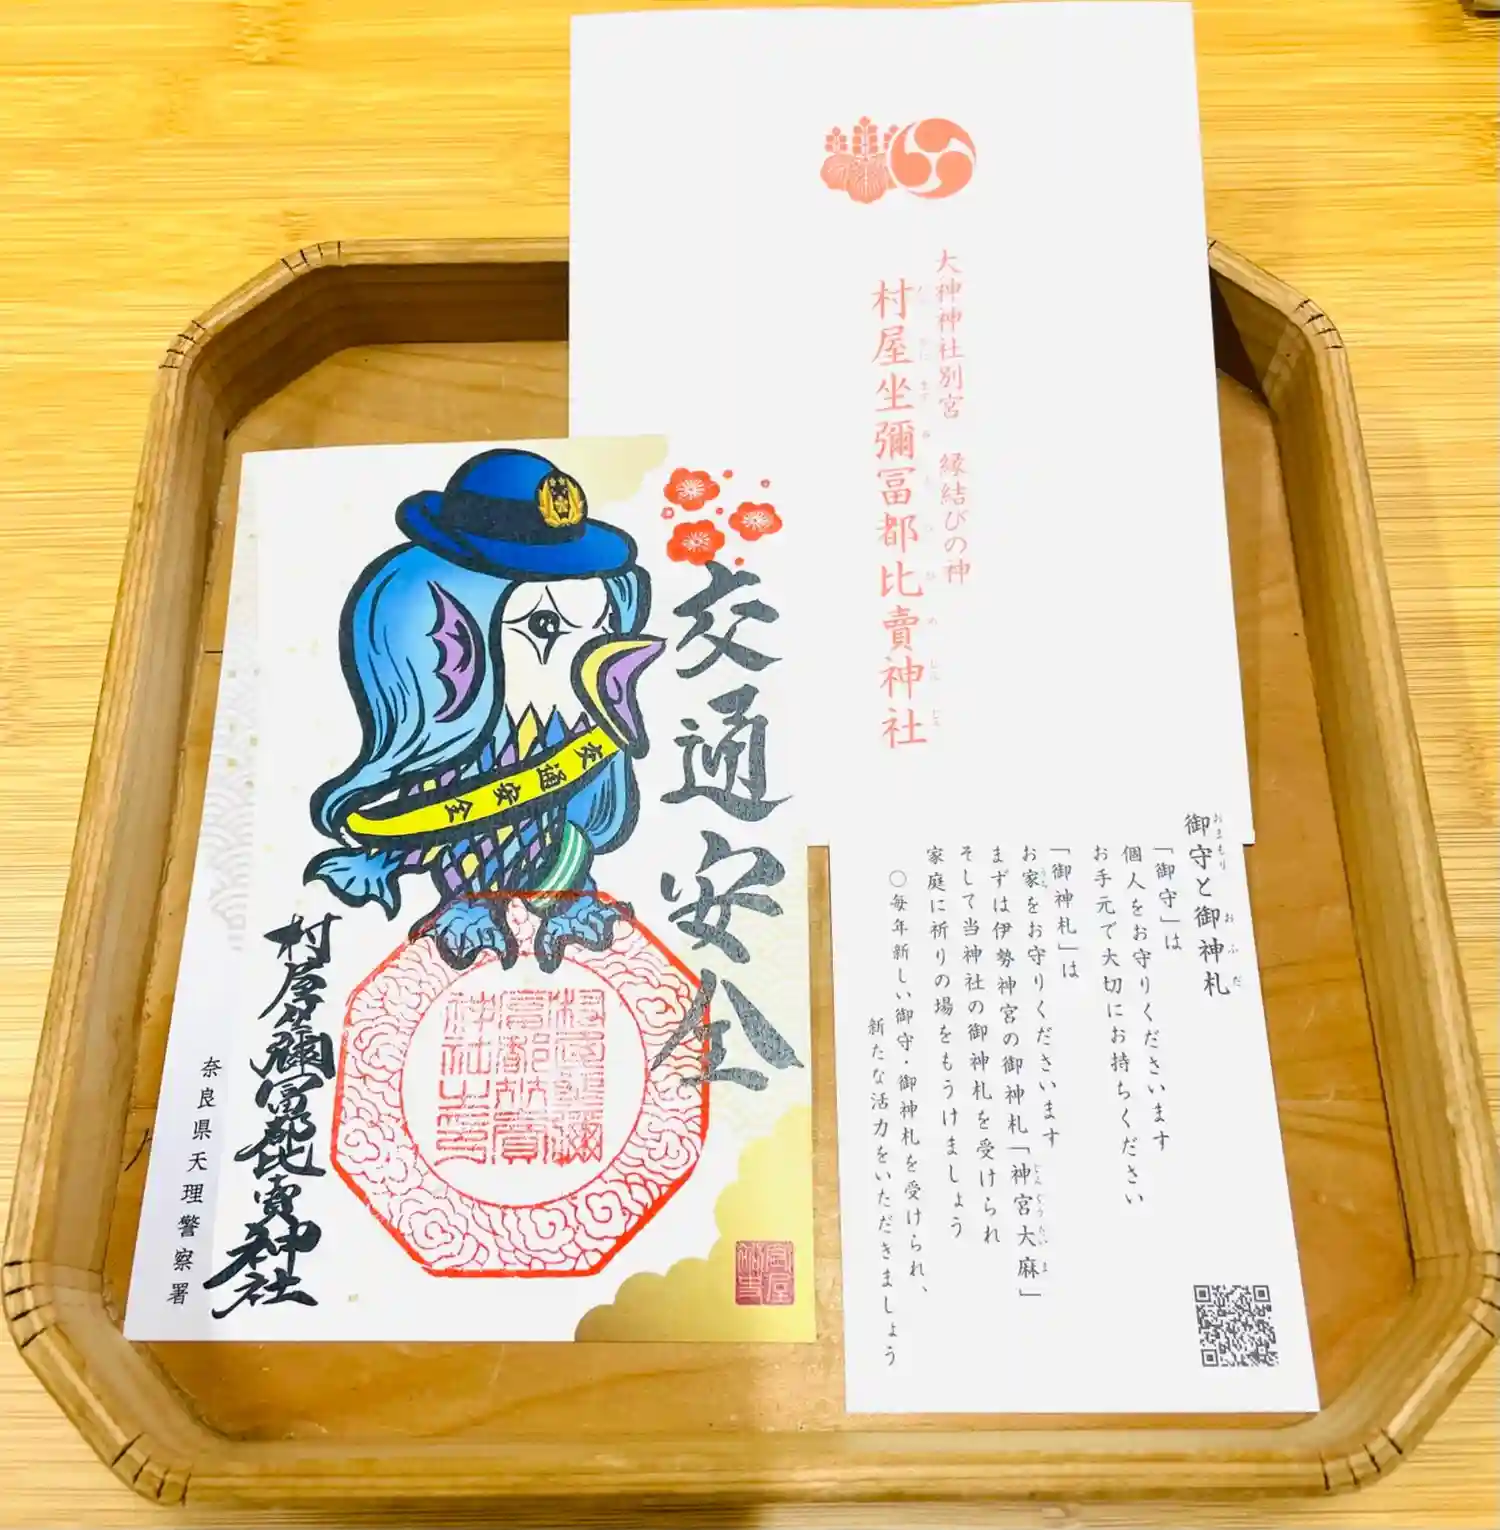 大神神社別宮　縁結びの神
村屋坐彌冨都比賣神社
交通安全
交通安全
村屋坐彌冨都比賣神社
奈良県天理警察署
御守と御神札
「御守」は
個人をお守りくださいます
お手元で大切にお持ちください
「御神札」は
お家をお守りくださいます
まずは伊勢神宮の御神札「神宮大麻」
そして当神社の御神札を受けられ
家庭に祈りの場をもうけましょう
〇毎年新しい御守・御神札を受けられ、
新たな活力をいただきましょう